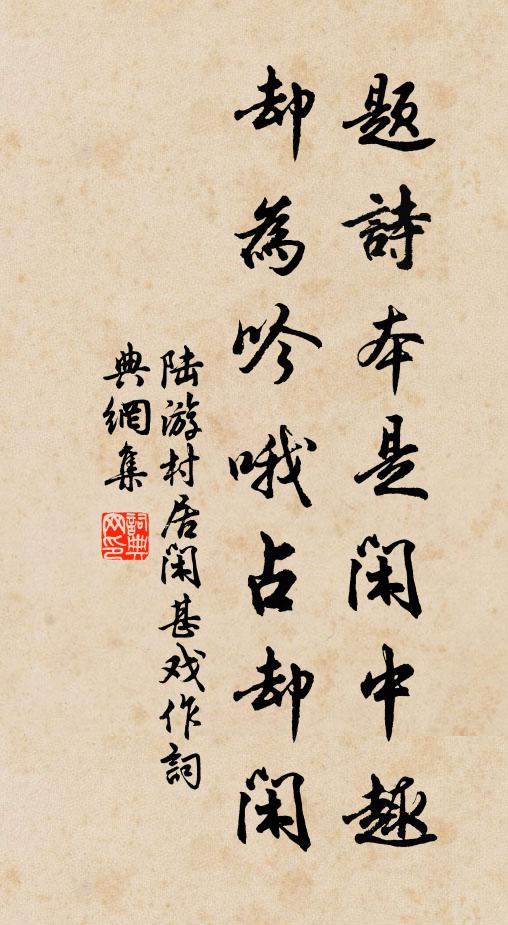 题詩本是闲中趣
却為吟哦占却闲
陆游村居闲甚戏作詞
典網集
詞典
网印